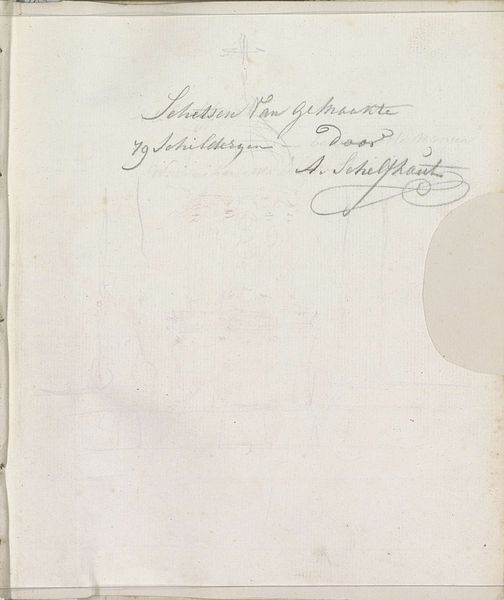 Schetsen Van gemaakte
79 Schilderyen door
A. Schelfhout